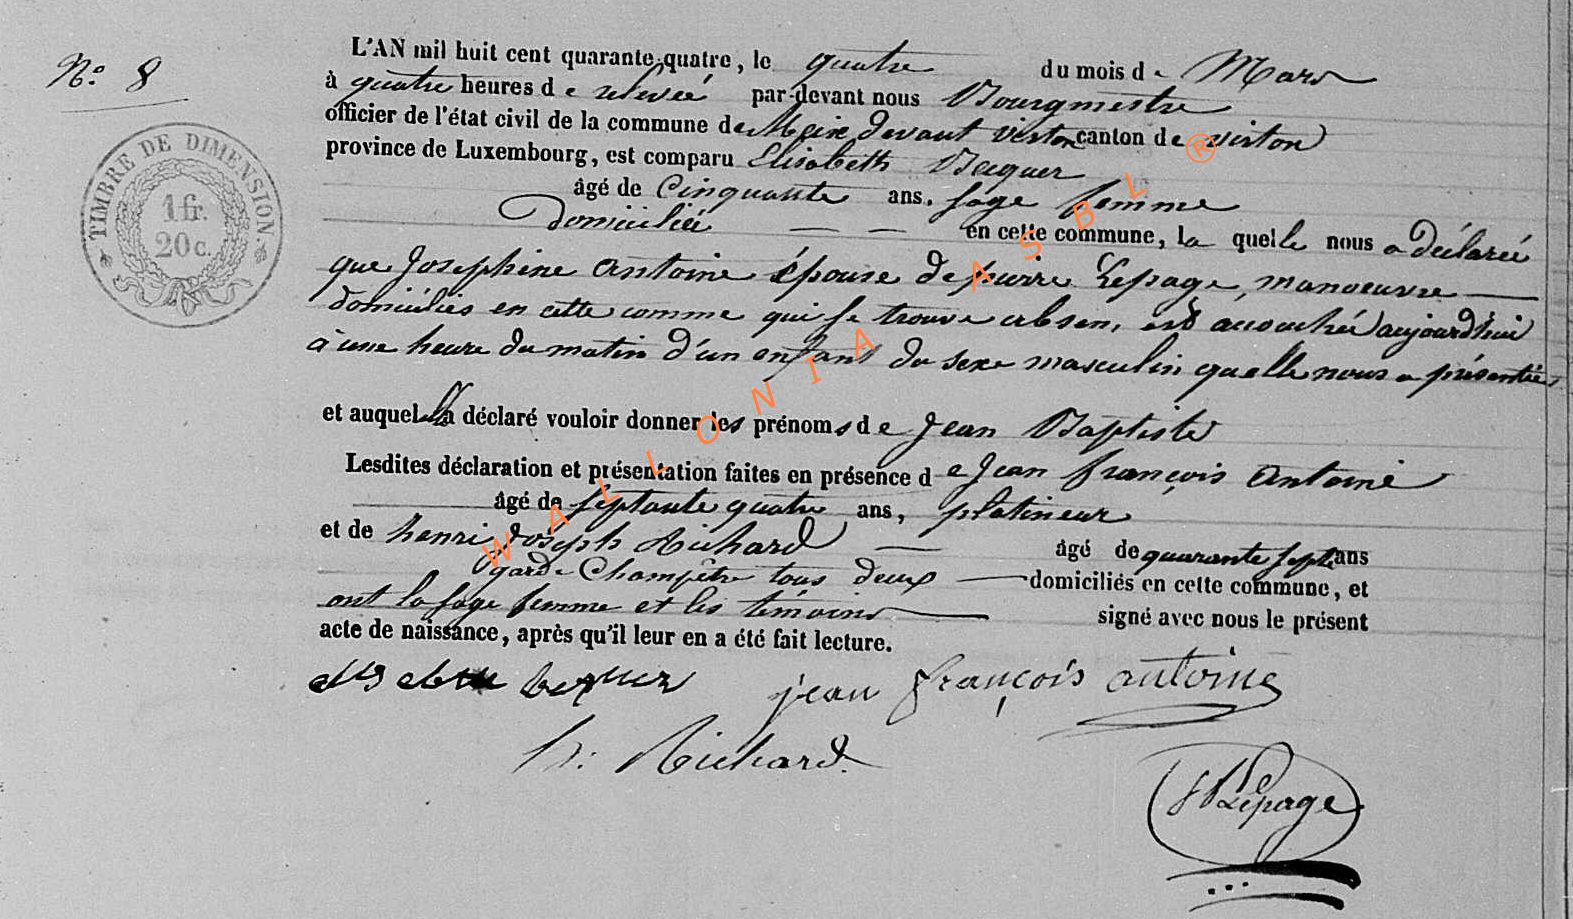 N.o 8
L'AN mil huit cent quarante-quatre, le quatre du mois de Mars
à quatre heures de relevée par-devant nous Bourgmestre
officier de l'état civil de la commune de Meix devant virton canton de virton
province de Luxembourg, est comparu Elisabeth Becquer
âgé de Cinquante ans. sage femme
Domiciliée en cette commune, la quelle nous a déclarée
que Josephine antoine épouse de pierre Lepage, manoeuvre
domiciliés en cette comme qui se trouve absen, est accouchée aujourd'hui
à une heure du matin d'un enfant du sexe masculin quelle nous a présentée
et auquel déclaré vouloir donner les prénoms de Jean Baptiste
Lesdites déclaration et présentation faites en présence de Jean françois antoine
âgé de septante quatre ans, platineur
et de henri Joseph Richard âgé de quarante sept ans
garde Champêtre tous deux domiciliés en cette commune, et
ont la sage femme et les témoins signé avec nous le présent
acte de naissance, après qu'il leur en a été fait lecture.
becquer jean françois antoine
h: Richard.
Lepage
TIMBRE DE DIMENSION
1 fr.
20 c.
WALLONIA ASBL ®